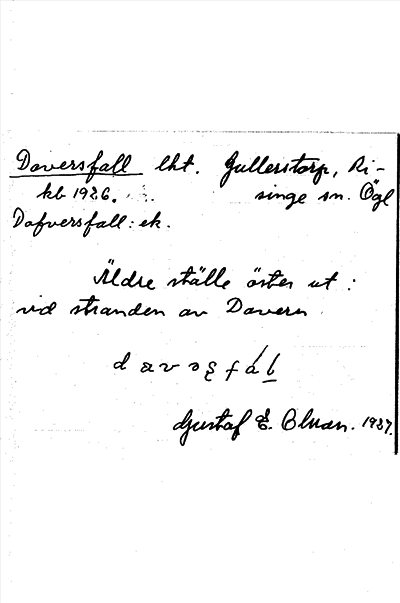 Daversfall lht. Gullerstorp, Ri-
kb 1926. singe sn. Ögl
Dafversfall: ek.
Äldre ställe öster ut :
vid stranden av Davern
Gustaf E. Olson. 1937.